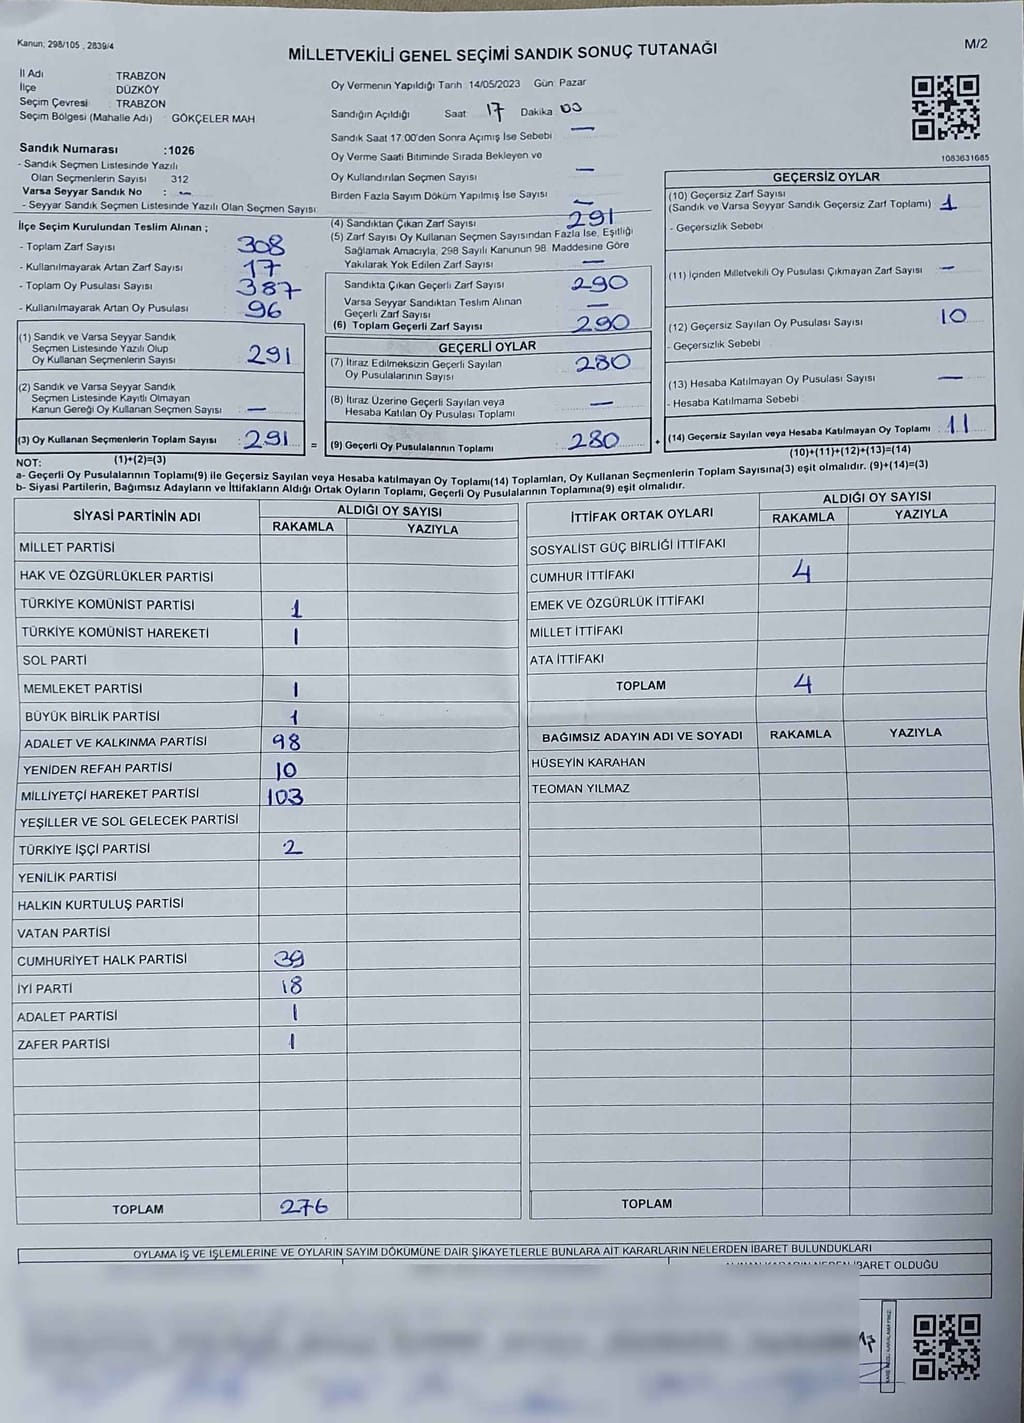 Kanun: 298/105 , 2839/4
MİLLETVEKİLİ GENEL SEÇİMİ SANDIK SONUÇ TUTANAĞI
M/2
İl Adı TRABZON
İlçe DÜZKÖY
Seçim Çevresi : TRABZON
Seçim Bölgesi (Mahalle Adı) : GÖKÇELER MAH
Sandık Numarası :1026
- Sandık Seçmen Listesinde Yazılı
Olan Seçmenlerin Sayısı 312
Varsa Seyyar Sandık No : —
- Seyyar Sandık Seçmen Listesinde Yazılı Olan Seçmen Sayısı
Oy Vermenin Yapıldığı Tarih :14/05/2023 Gün: Pazar
Sandığın Açıldığı Saat 17 Dakika 03
Sandık Saat 17:00'den Sonra Açımış İse Sebebi —
Oy Verme Saati Bitiminde Sırada Bekleyen ve
Oy Kullandırılan Seçmen Sayısı —
Birden Fazla Sayım Döküm Yapılmış İse Sayısı —
1083631685
İlçe Seçim Kurulundan Teslim Alınan ;
- Toplam Zarf Sayısı 308
- Kullanılmayarak Artan Zarf Sayısı 17
- Toplam Oy Pusulası Sayısı 387
- Kullanılmayarak Artan Oy Pusulası 96
(1) Sandık ve Varsa Seyyar Sandık
Seçmen Listesinde Yazılı Olup
Oy Kullanan Seçmenlerin Sayısı 291
(2) Sandık ve Varsa Seyyar Sandık
Seçmen Listesinde Kayıtlı Olmayan
Kanun Gereği Oy Kullanan Seçmen Sayısı —
(3) Oy Kullanan Seçmenlerin Toplam Sayısı : 291 =
(1)+(2)=(3)
(4) Sandıktan Çıkan Zarf Sayısı 291
(5) Zarf Sayısı Oy Kullanan Seçmen Sayısından Fazla İse, Eşitliği
Sağlamak Amacıyla, 298 Sayılı Kanunun 98. Maddesine Göre
Yakılarak Yok Edilen Zarf Sayısı —
Sandıkta Çıkan Geçerli Zarf Sayısı 290
Varsa Seyyar Sandıktan Teslim Alınan
Geçerli Zarf Sayısı —
(6) Toplam Geçerli Zarf Sayısı 290
GEÇERLİ OYLAR
(7) İtiraz Edilmeksizin Geçerli Sayılan
Oy Pusulalarının Sayısı 280
(8) İtiraz Üzerine Geçerli Sayılan veya
Hesaba Katılan Oy Pusulası Toplamı —
(9) Geçerli Oy Pusulalarının Toplamı 280 +
GEÇERSİZ OYLAR
(10) Geçersiz Zarf Sayısı
(Sandık ve Varsa Seyyar Sandık Geçersiz Zarf Toplamı) 1
- Geçersizlik Sebebi
(11) İçinden Milletvekili Oy Pusulası Çıkmayan Zarf Sayısı —
(12) Geçersiz Sayılan Oy Pusulası Sayısı 10
- Geçersizlik Sebebi
(13) Hesaba Katılmayan Oy Pusulası Sayısı —
- Hesaba Katılmama Sebebi
(14) Geçersiz Sayılan veya Hesaba Katılmayan Oy Toplamı : 11
(10)+(11)+(12)+(13)=(14)
NOT:
a- Geçerli Oy Pusulalarının Toplamı(9) ile Geçersiz Sayılan veya Hesaba katılmayan Oy Toplamı(14) Toplamları, Oy Kullanan Seçmenlerin Toplam Sayısına(3) eşit olmalıdır. (9)+(14)=(3)
b- Siyasi Partilerin, Bağımsız Adayların ve İttifakların Aldığı Ortak Oyların Toplamı, Geçerli Oy Pusulalarının Toplamına(9) eşit olmalıdır.
SİYASİ PARTİNİN ADI ALDIĞI OY SAYISI
RAKAMLA YAZIYLA
MİLLET PARTİSİ
HAK VE ÖZGÜRLÜKLER PARTİSİ
TÜRKİYE KOMÜNİST PARTİSİ 1
TÜRKİYE KOMÜNİST HAREKETİ 1
SOL PARTİ
MEMLEKET PARTİSİ 1
BÜYÜK BİRLİK PARTİSİ 1
ADALET VE KALKINMA PARTİSİ 98
YENİDEN REFAH PARTİSİ 10
MİLLİYETÇİ HAREKET PARTİSİ 103
YEŞİLLER VE SOL GELECEK PARTİSİ
TÜRKİYE İŞÇİ PARTİSİ 2
YENİLİK PARTİSİ
HALKIN KURTULUŞ PARTİSİ
VATAN PARTİSİ
CUMHURİYET HALK PARTİSİ 39
İYİ PARTİ 18
ADALET PARTİSİ 1
ZAFER PARTİSİ 1
TOPLAM 276
İTTİFAK ORTAK OYLARI ALDIĞI OY SAYISI
RAKAMLA YAZIYLA
SOSYALİST GÜÇ BİRLİĞİ İTTİFAKI
CUMHUR İTTİFAKI 4
EMEK VE ÖZGÜRLÜK İTTİFAKI
MİLLET İTTİFAKI
ATA İTTİFAKI
TOPLAM 4
BAĞIMSIZ ADAYIN ADI VE SOYADI RAKAMLA YAZIYLA
HÜSEYİN KARAHAN
TEOMAN YILMAZ
TOPLAM
OYLAMA İŞ VE İŞLEMLERİNE VE OYLARIN SAYIM DÖKÜMÜNE DAİR ŞİKAYETLERLE BUNLARA AİT KARARLARIN NELERDEN İBARET BULUNDUKLARI
İBARET OLDUĞU